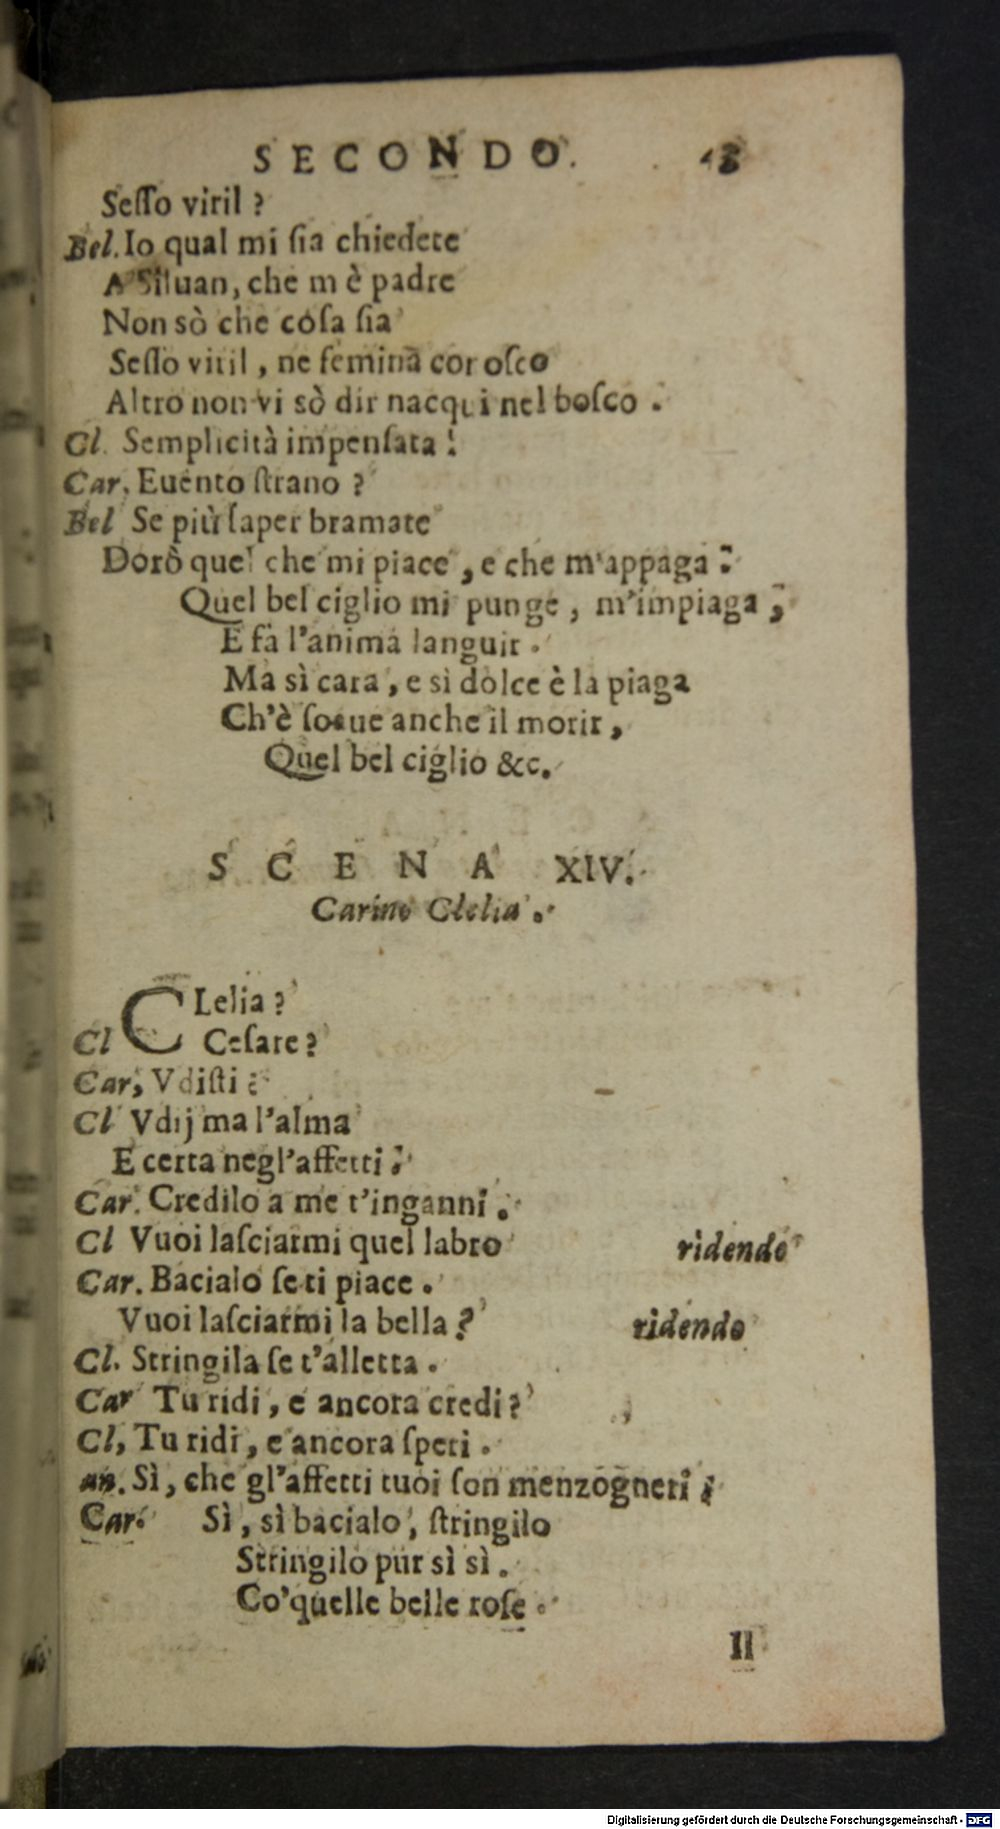 SECONDO.
Seſſo viril?
Bel. Io qual mi ſia chiedete
A Siluan, che m è padre
Non sò che coſa ſia
Seſſo viril, ne femina cor oſco
Altro non vi sò dir nacqui nel boſco.
Cl. Semplicità impenſata!
Car. Euento ſtrano?
Bel Se più ſaper bramate
Dorò quel che mi piace, e che m'appaga:
Quel bel ciglio mi punge, m'impiaga;
E fà l'anima languir.
Ma sì cara, e sì dolce è la piaga
Ch'è ſoaue anche il morir,
Quel bel ciglio &c.
SCENA XIV.
Carino Clelia.
CLelia?
Cl Ceſare?
Car, Vdiſti?
Cl Vdij ma l'alma
E certa negl'affetti;
Car. Credilo a me t'inganni.
Cl Vuoi laſciarmi quel labro ridendo
Car. Bacialo ſe ti piace.
Vuoi laſciarmi la bella? ridendo
Cl. Stringila ſe t'alletta.
Car Tu ridi, e ancora credi?
Cl, Tu ridi, e ancora ſperi.
an. Sì, che gl'affetti tuoi ſon menzogneri;
Car. Sì, sì bacialo, ſtringilo
Stringilo pur sì sì.
Co'quelle belle roſe.
Il
Digitalisierung gefördert durch die Deutsche Forschungsgemeinschaft - DFG